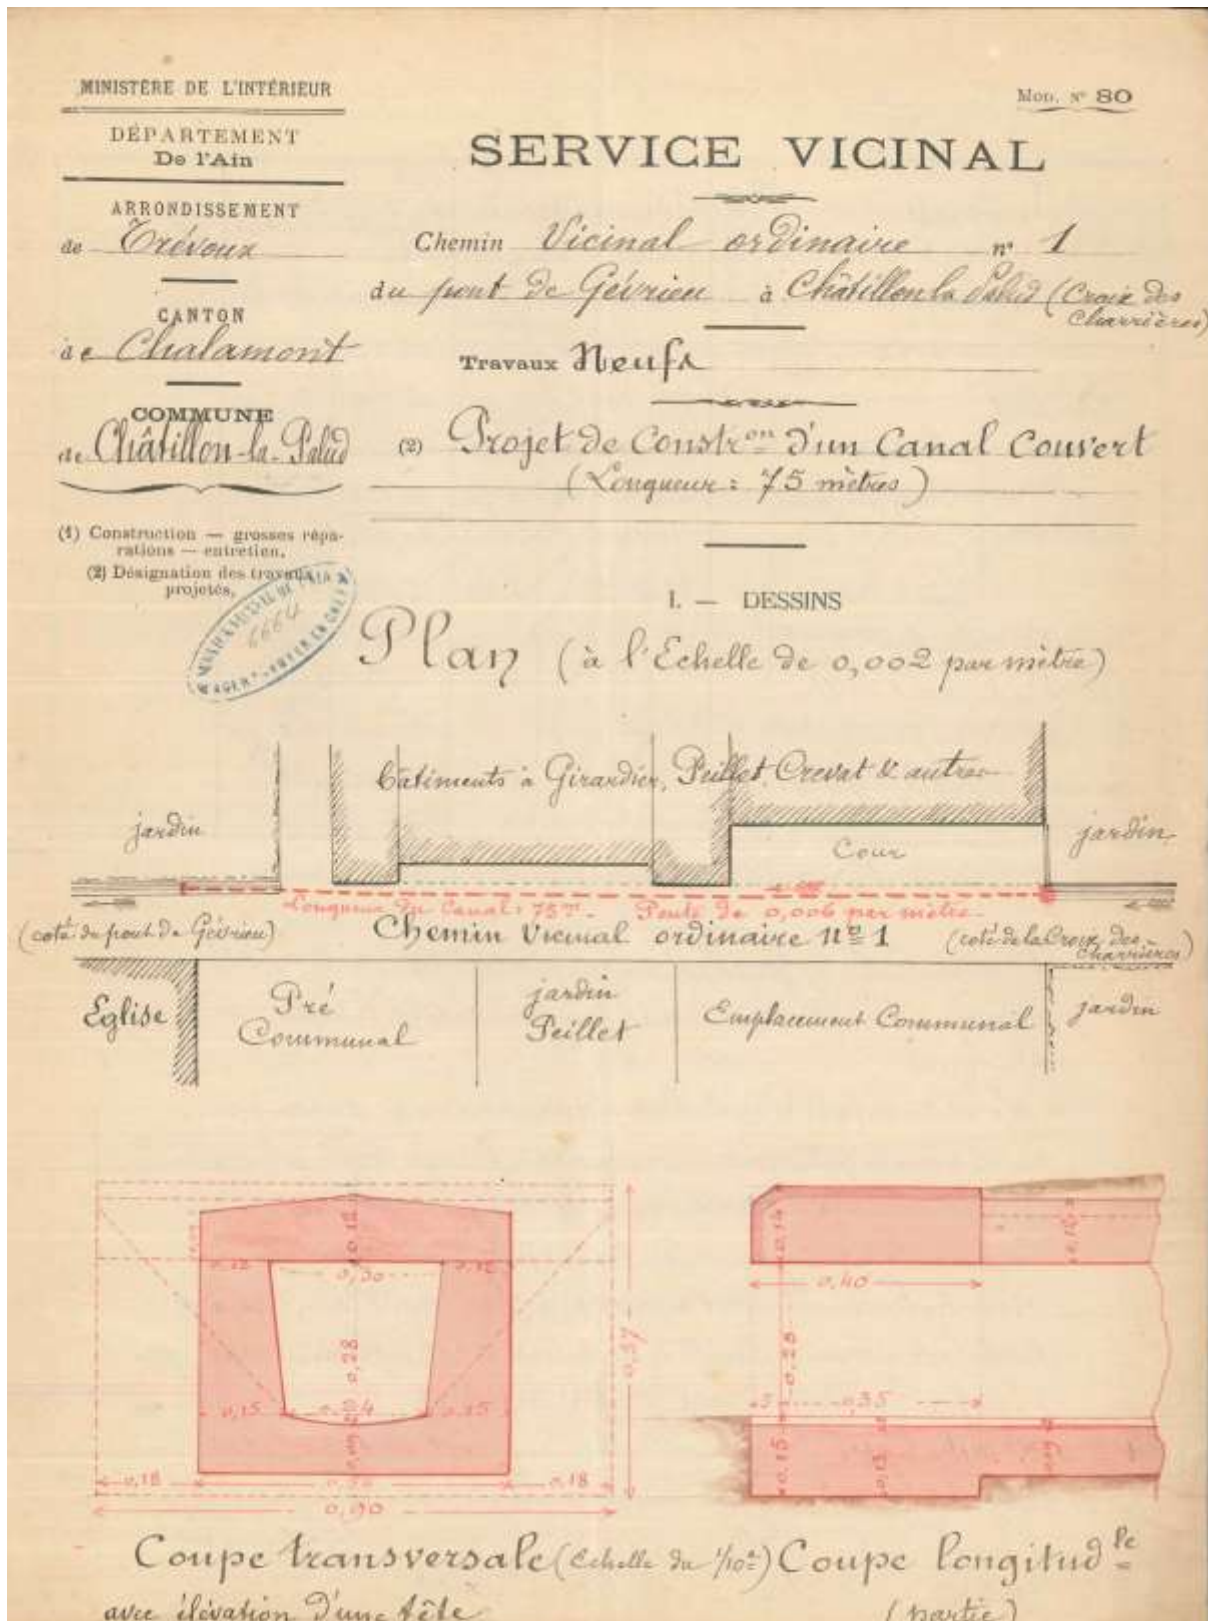 MINISTÈRE DE L'INTÉRIEUR
DÉPARTEMENT
De l'Ain
ARRONDISSEMENT
de Trévoux
CANTON
de Chalamont
COMMUNE
de Châtillon-la-Palud
(1) Construction — grosses répa-
rations — entretien.
(2) Désignation des travaux
projetés.
6664
Mod. N° 80
SERVICE VICINAL
Chemin Vicinal ordinaire n° 1
du pont de Gévrieu à Châtillon la Palud (Croix des
Charrières)
Travaux Neufs
(2) Projet de Constr^on d'un Canal Couvert
(Longueur : 75 mètres)
I. — DESSINS
Plan (à l'Echelle de 0,002 par mètre)
Bâtiments à Girardier, Peillet, Crevat & autres
jardin
Cour
jardin
Longueur du Canal : 75m. Pente de 0,006 par mètre.
(coté du pont de Gévrieu)
Chemin Vicinal ordinaire n° 1
(coté de la Croix des
Charrières)
Eglise
Pré
Communal
jardin
Peillet
Emplacement Communal
jardin
0,12
0,30
0,12
0,28
0,57
0,15
0,15
0,18
0,18
0,90
0,14
0,40
0,28
5
0,35
0,15
Coupe transversale (Echelle du 1/10e)
avec élévation d'une tête
Coupe longitud^le
(partie)